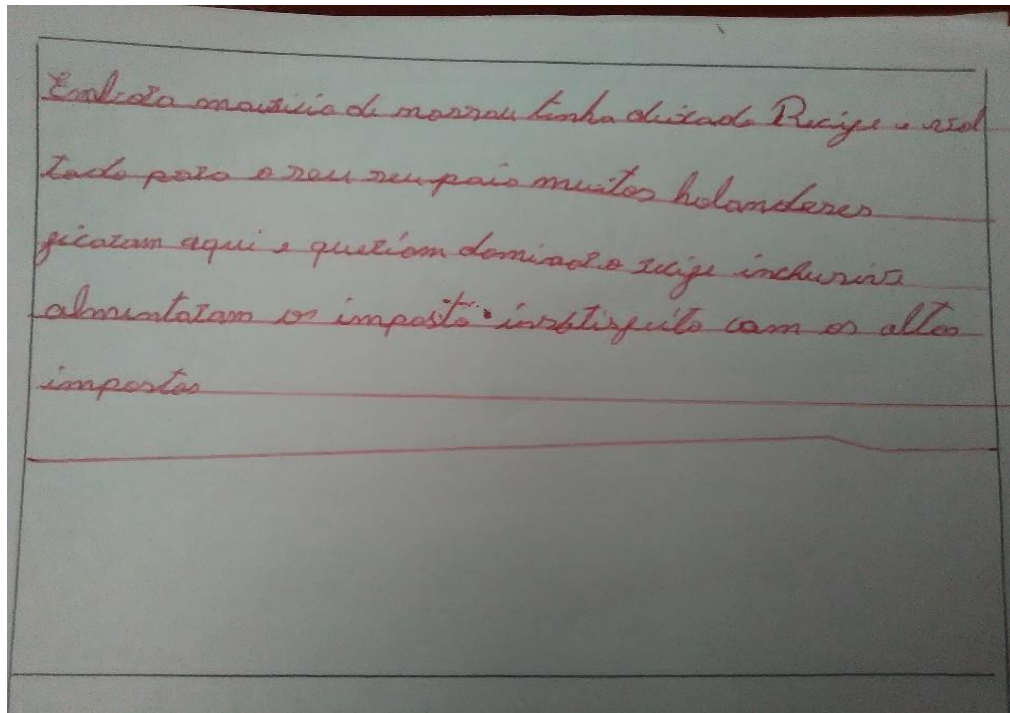 Embora mauricio de nassau tinha deixado Recife e vol
tado para o seu seu pais muitos holandeses
ficaram aqui e queriam dominar o recife inclusive
almentaram os imposto insatisfeito com os altos
impostos